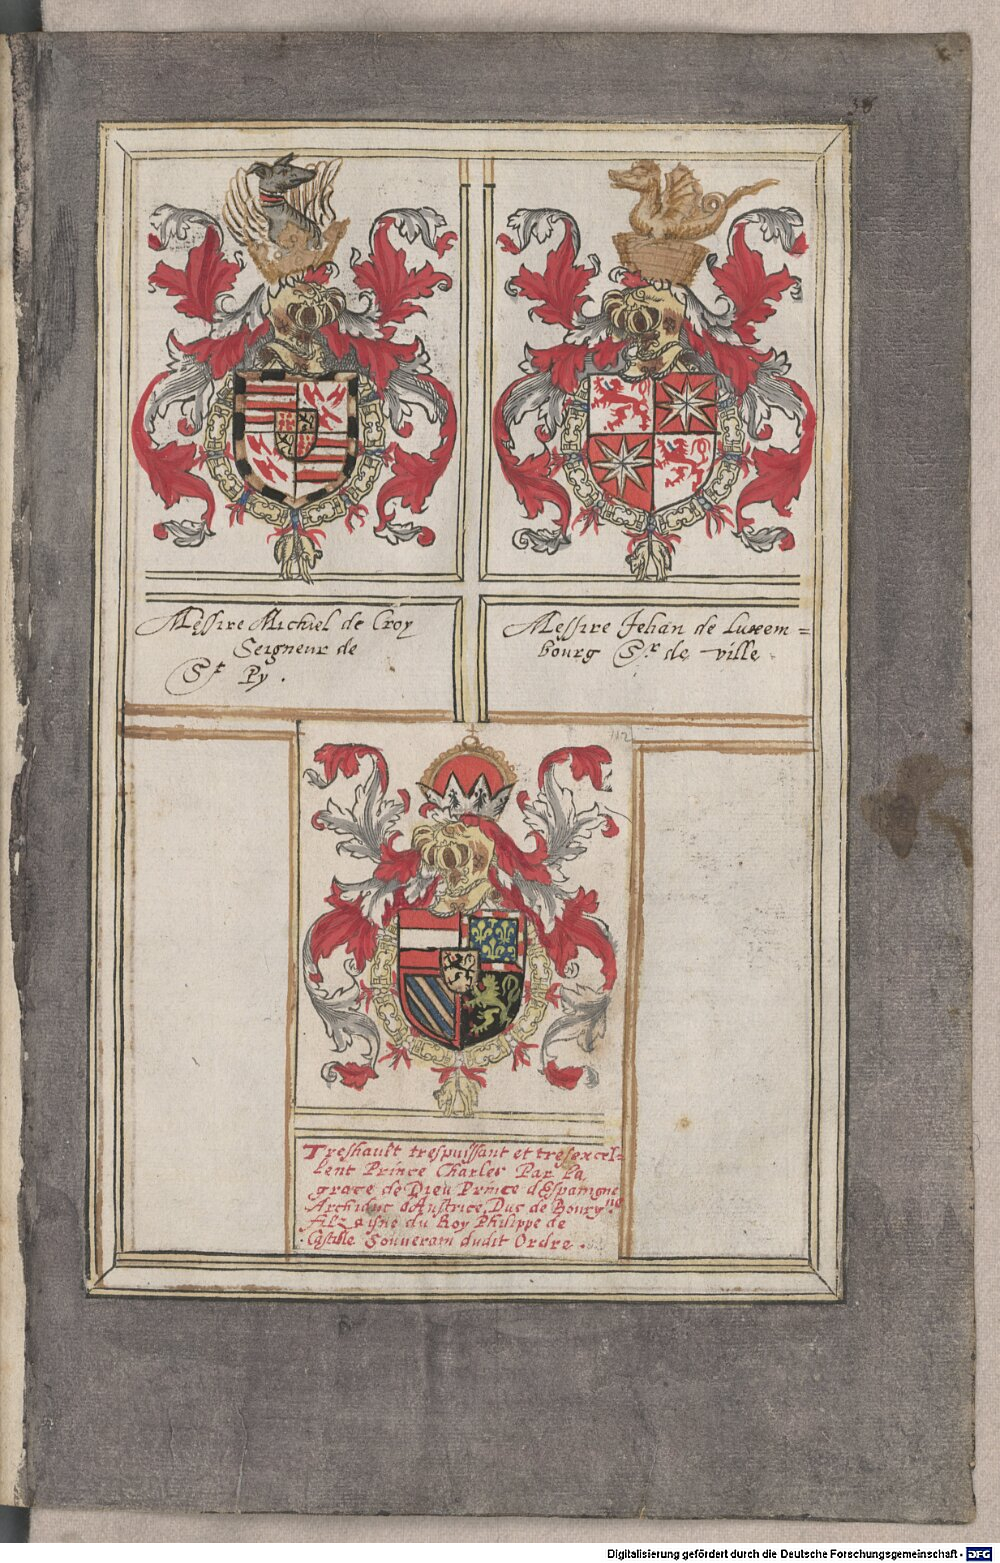 Messire Michiel de Croy
Seigneur de
St Py .
Messire Jehan de Luxem=
bourg Sr de ville
112
Treshault trespuissant et tresexcel-
lent Prince Charles Par la
grace de Dieu Prince dEspaingne
Archiduc dAustrice, Duc de Bourgne
filz aisne du Roy Philippe de
Castille Souverain dudit Ordre .
Digitalisierung gefördert durch die Deutsche Forschungsgemeinschaft - DFG